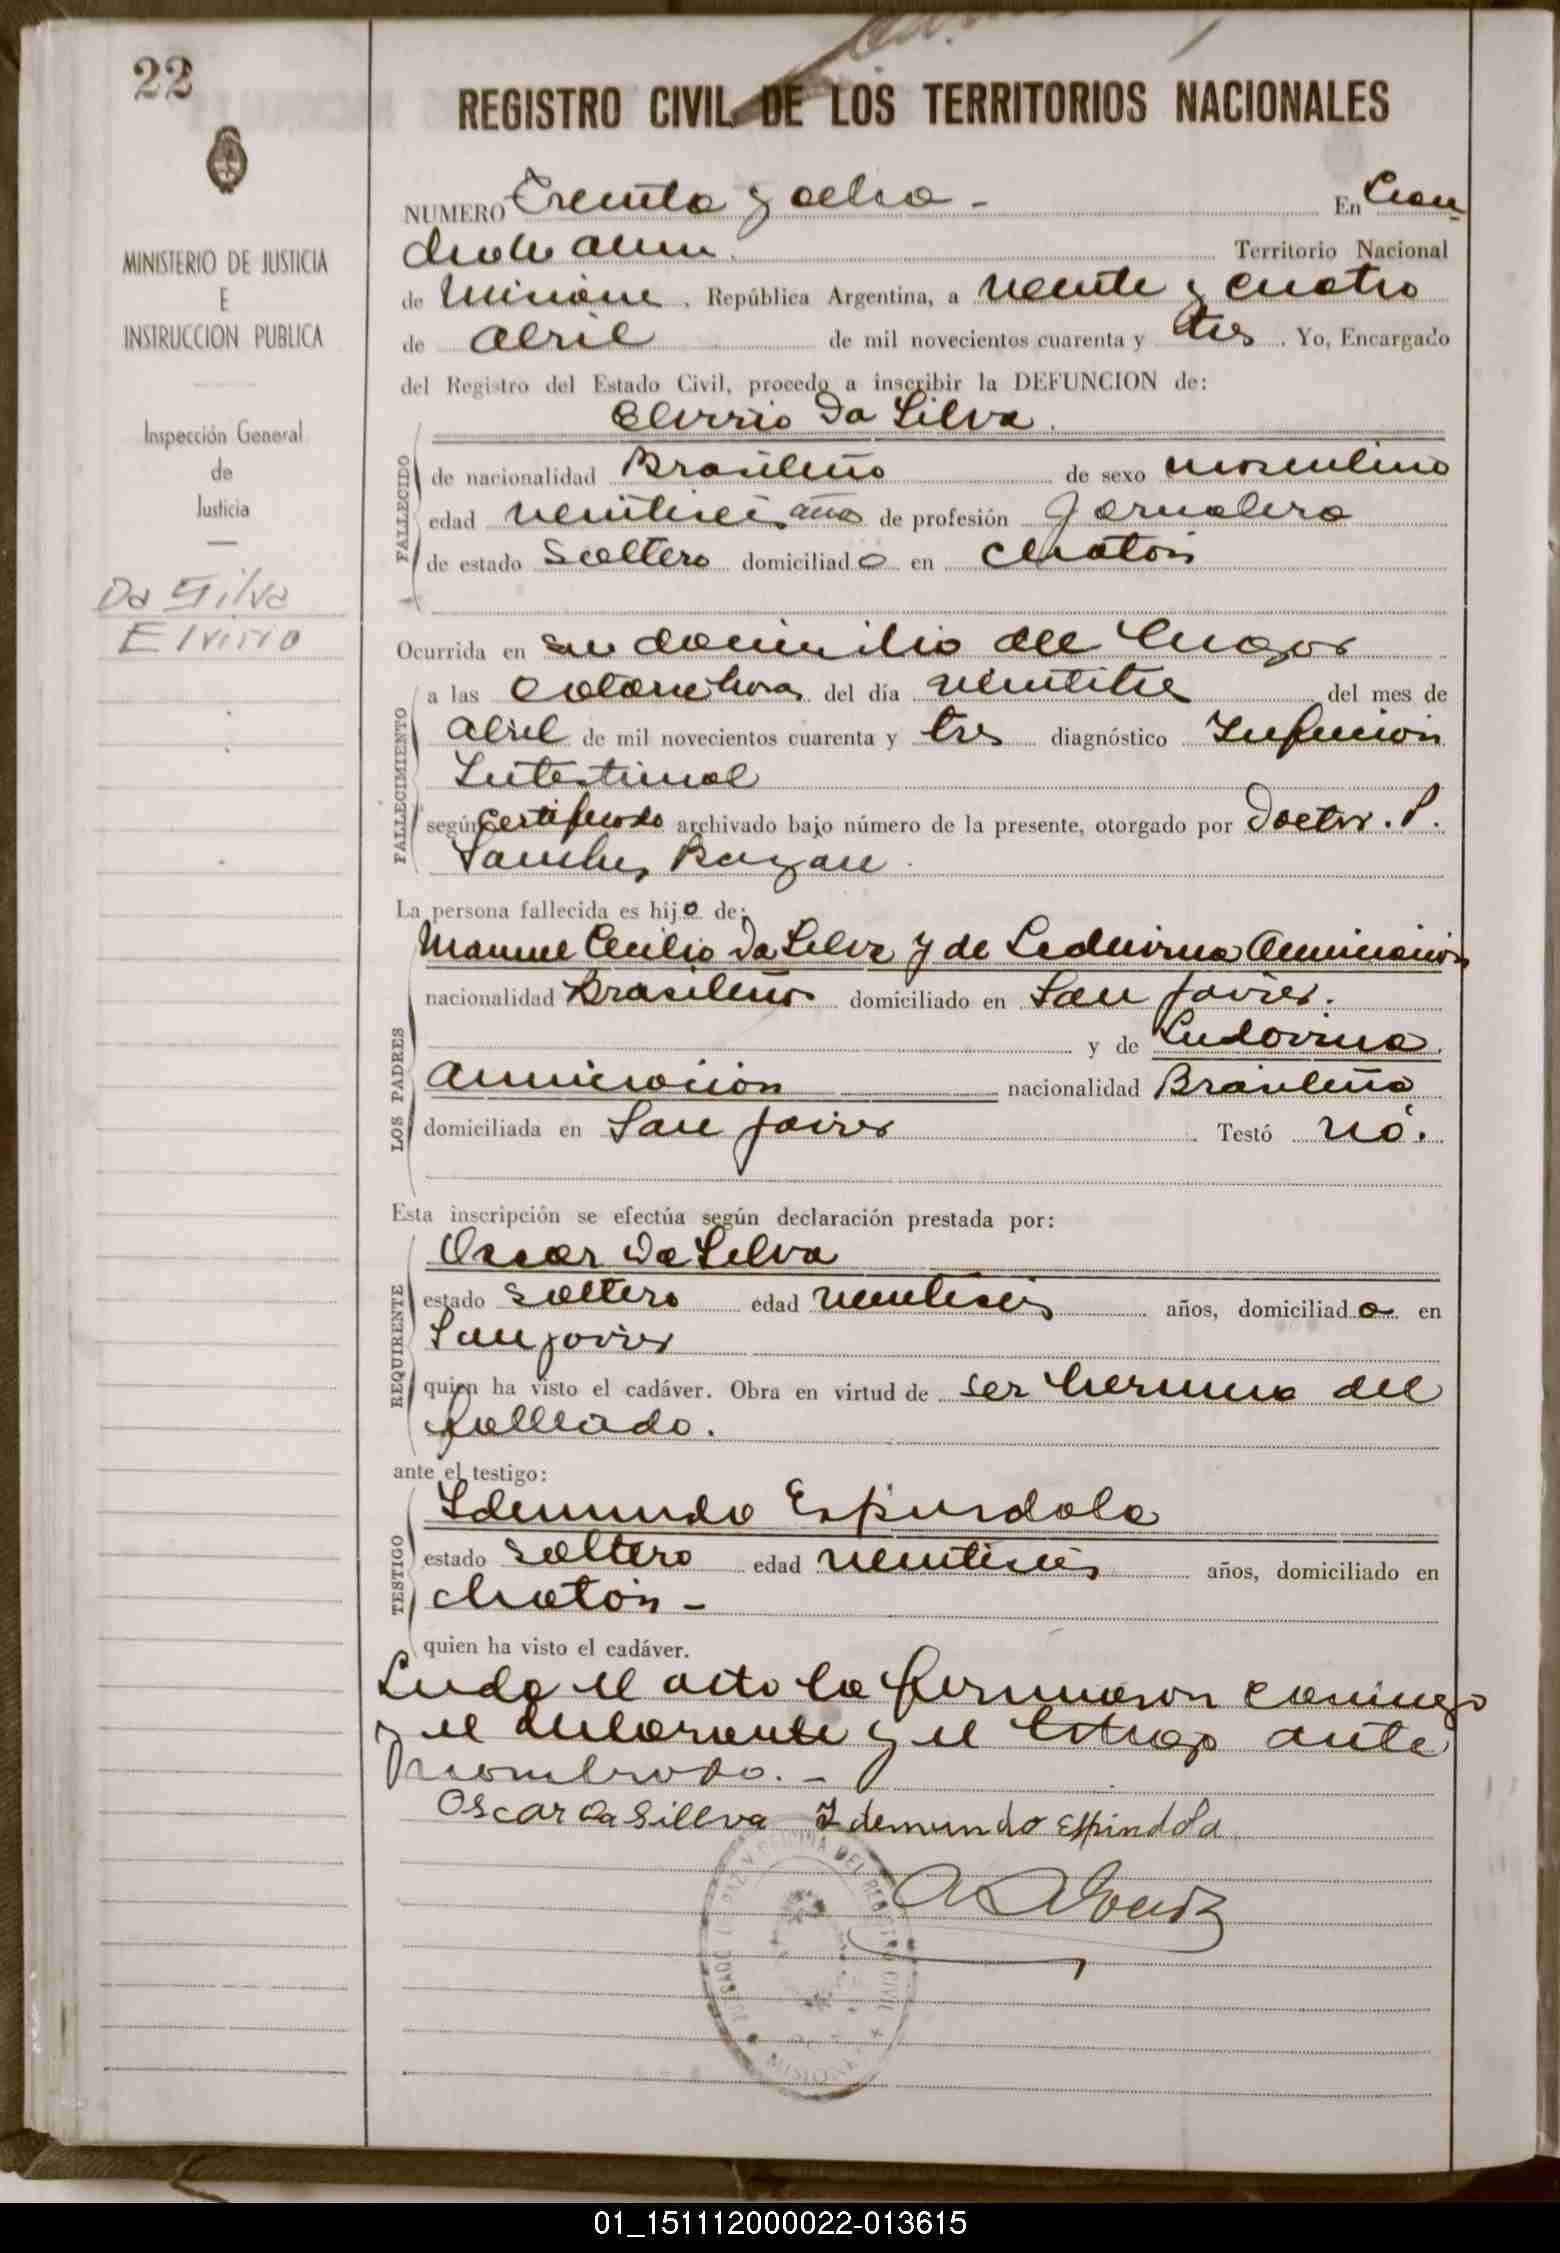 22
REGISTRO CIVIL DE LOS TERRITORIOS NACIONALES
MINISTERIO DE JUSTICIA
E
INSTRUCCION PUBLICA
Inspección General
de
Justicia
Da Silva
Elvirio
NUMERO Treinta y ocho - En Lean
dro N. Alem. Territorio Nacional
de Misiones, República Argentina, a veinte y cuatro
de abril de mil novecientos cuarenta y tres. Yo, Encargado
del Registro del Estado Civil, procedo a inscribir la DEFUNCION de:
Elvirio Da Silva.
FALLECIDO
de nacionalidad Brasileño de sexo masculino
edad veintiseis años de profesión Jornalero
de estado Soltero domiciliado en Chatón
Ocurrida en su domicilio del lugar
FALLECIMIENTO
a las catorce horas del día veintitres del mes de
abril de mil novecientos cuarenta y tres diagnóstico Infeccion
Intestinal
según certificado archivado bajo número de la presente, otorgado por Doctor. P.
Sanchez Bazan.
La persona fallecida es hijo de:
LOS PADRES
Manuel Cecilio Da Silva y de Ludovina Anunciacion
nacionalidad Brasileño domiciliado en San Javier.
y de Ludovina
Anunciacion nacionalidad Brasileña
domiciliada en San Javier Testó nó.
Esta inscripción se efectúa según declaración prestada por:
REQUIRENTE
Oscar Da Silva
estado Soltero edad veintiseis años, domiciliado en
San Javier
quien ha visto el cadáver. Obra en virtud de ser hermano del
fallecido.
ante el testigo:
TESTIGO
Idemundo Espindola
estado Soltero edad veintiseis años, domiciliado en
Chatón -
quien ha visto el cadáver.
Leida el acta la firmaron conmigo
y el declarante y el testigo ante
nombrado. -
Oscar Da Sillva Idemundo Espindola
JUZGADO DE PAZ Y OFICINA DEL REGISTRO CIVIL
MISIONES
01_151112000022-013615